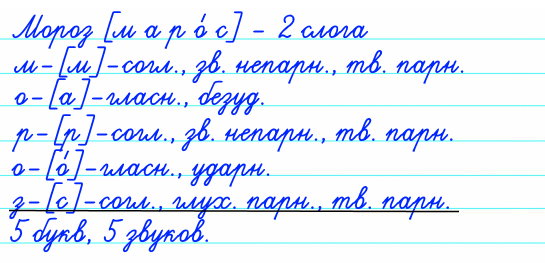 Мороз [м а р о́ с] – 2 слога
м – [м] – согл., зв. непарн., тв. парн.
о – [а] – гласн., безуд.
р – [р] – согл., зв. непарн., тв. парн.
о – [о́] – гласн., ударн.
з – [с] – согл., глух. парн., тв. парн.
5 букв, 5 звуков.